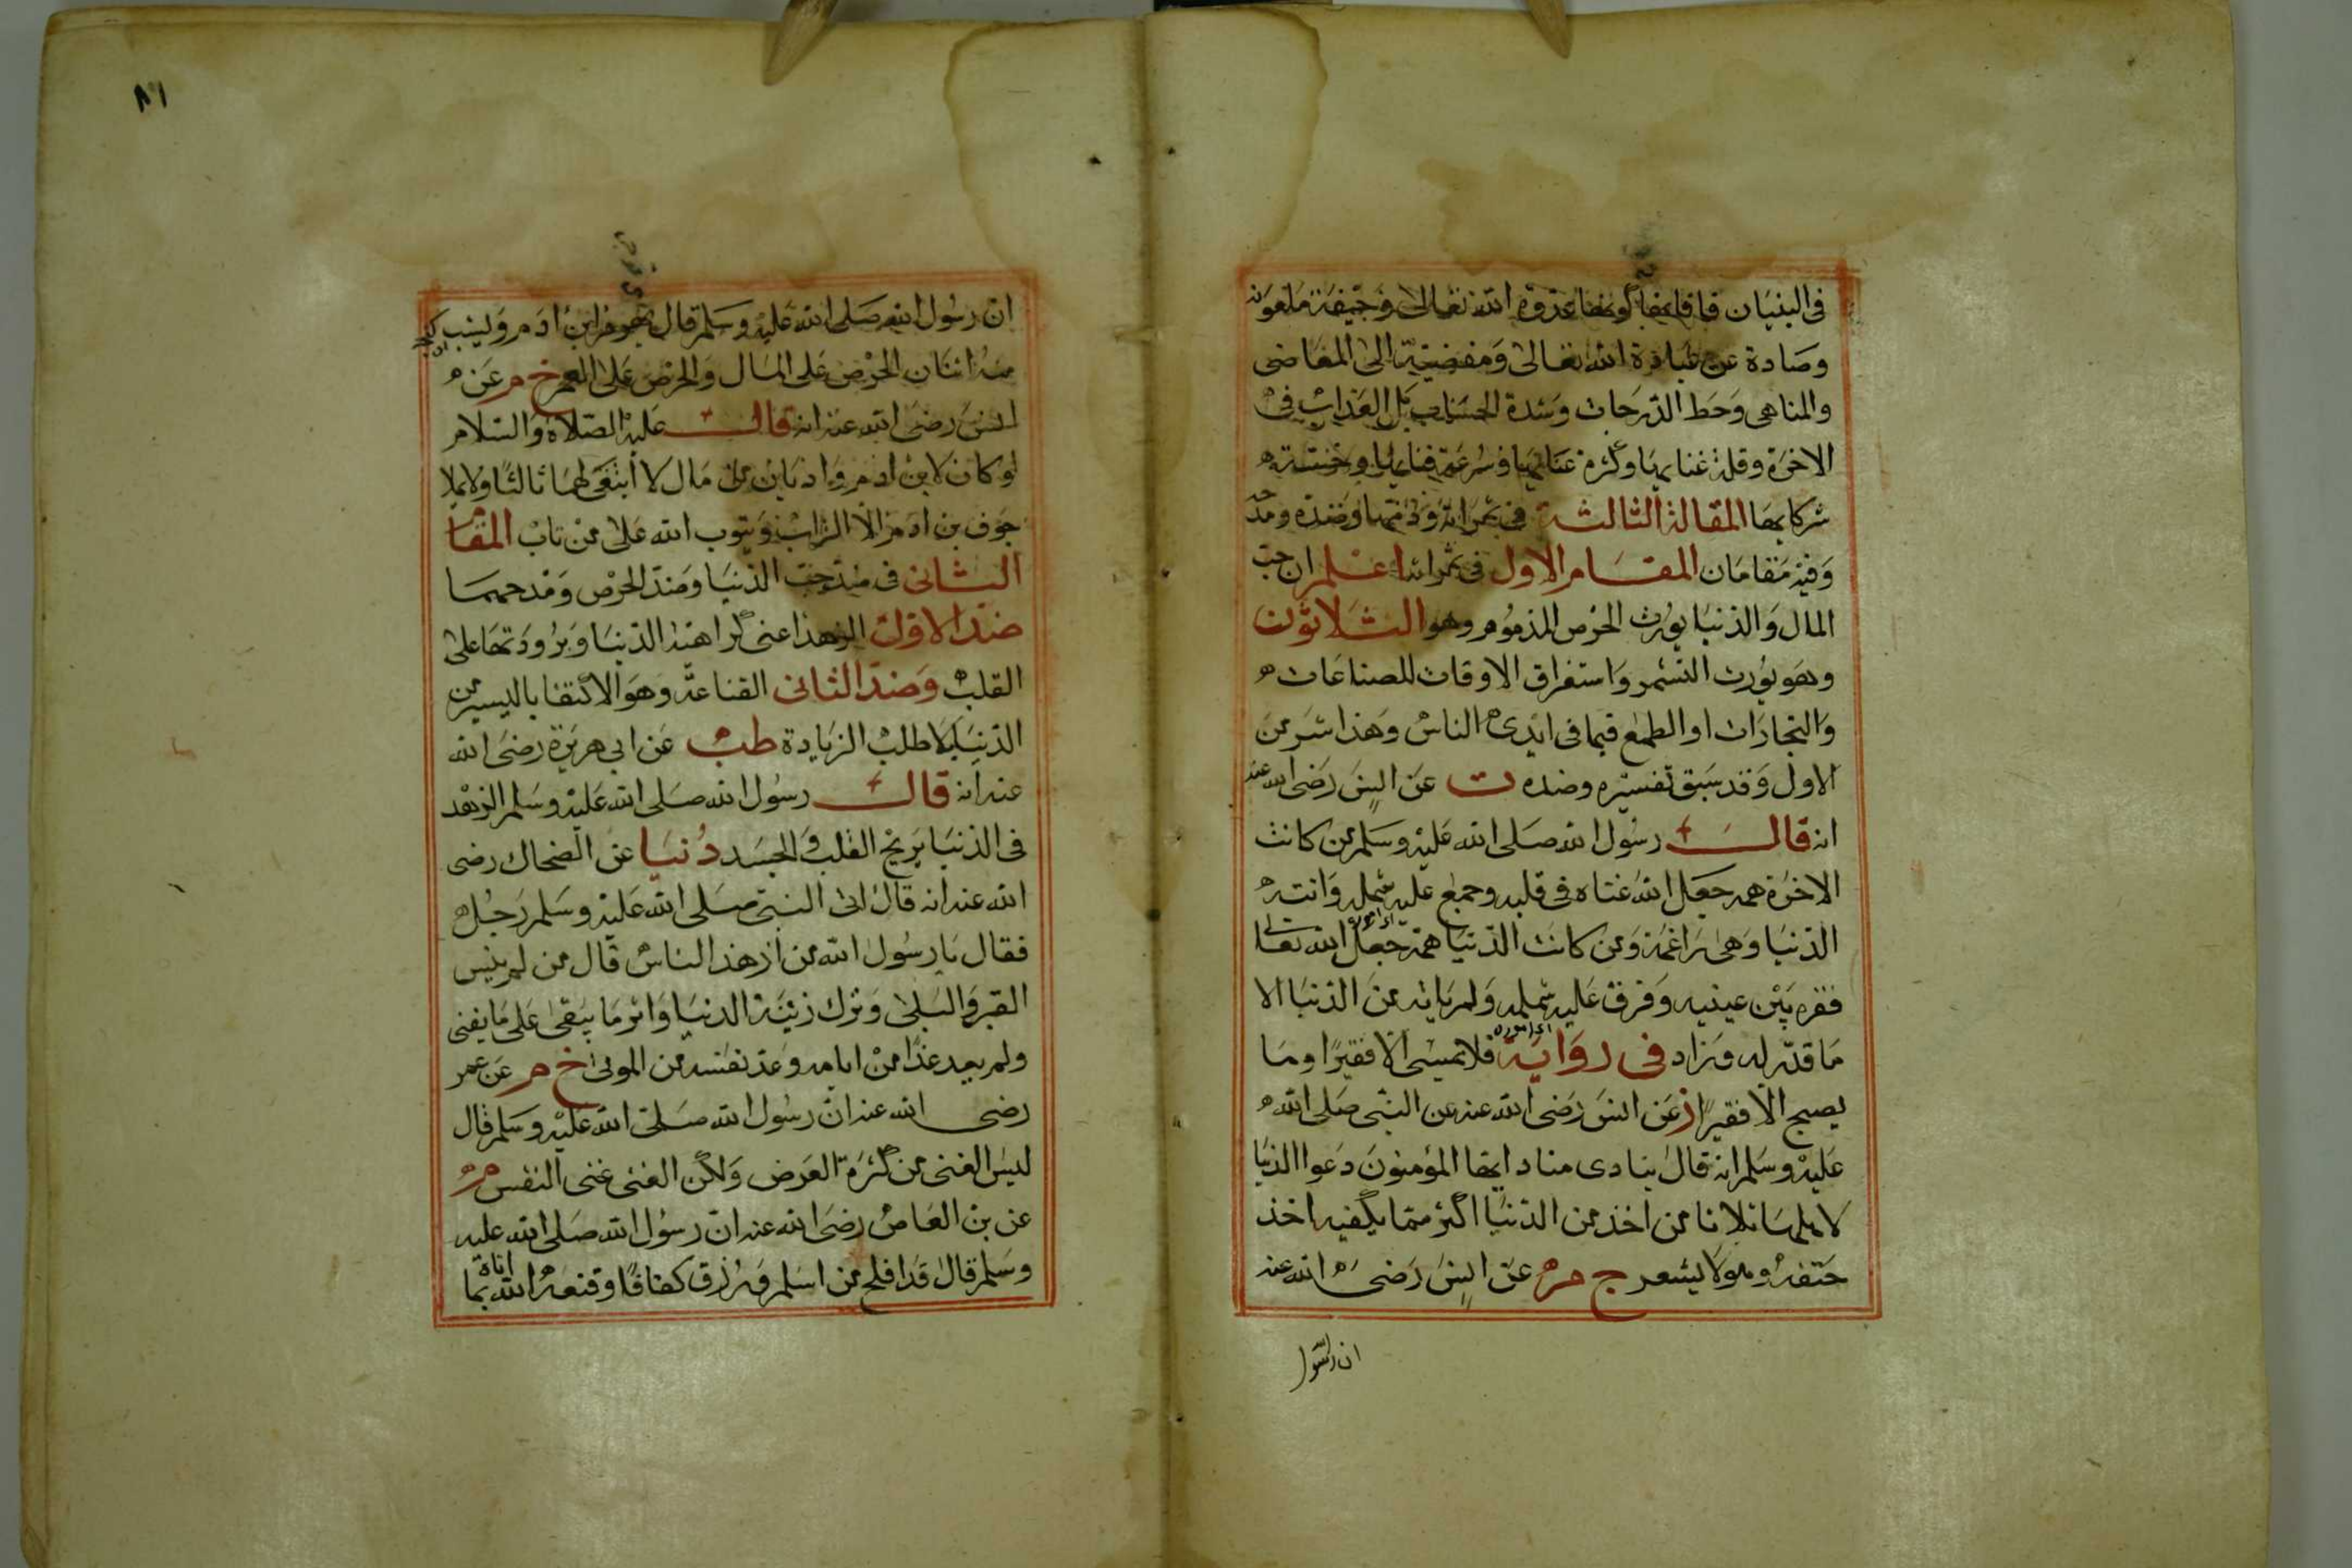 فى البنيان فافاتها كونها عدوة الله تعالى وجيفة ملعونة
وصادة عن عبادة الله تعالى ومفضية الى المعاصى
والمناهى وحط الدرجات وشدة الحساب بل العذاب فى
الاخرة وقلة غنايها وكثرة عنايها وسرعة فنايها وخسة
شركايها المقالة الثالثة فى ثمراته وذمتها وضده ومدحه
وفيه مقامان المقام الاول فى ثمراته اعلم ان حب
المال والدنيا يورث الحرص المذموم وهو الثلاثون
وهو يورث التشمر واستغراق الاوقات للصناعات
والتجارات او الطمع فيما فى ايدى الناس وهذا شر من
الاول وقد سبق تفسيره وضده ت عن انس رضى الله عنه
انه قال رسول الله صلى الله عليه وسلم من كانت
الاخرة همه جعل الله غناه فى قلبه وجمع عليه شمله وانته
اى اموره
الدنيا وهى راغمة ومن كانت الدنيا همه جعل الله تعالى
فقره بين عينيه وفرق عليه شمله ولم ياته من الدنيا الا
اى اموره
ما قدر له وزاد فى رواية فلا يمسى الا فقيرا وما
يصبح الا فقيرا ز عن انس رضى الله عنه عن النبى صلى الله
عليه وسلم انه قال ينادى مناد ايها المؤمنون دعوا الدنيا
لاهلها ثلاثا من اخذ من الدنيا اكثر مما يكفيه اخذ
حتفه وهو لا يشعر خ م عن انس رضى الله عنه
ان رسول
٨١
ان رسول الله صلى الله عليه وسلم قال يهرم ابن ادم ويشب
منه اثنان الحرص على المال والحرص على العمر خ م عن
انس رضى الله عنه انه قال عليه الصلاة والسلام
لو كان لابن ادم واديان من مال لا ابتغى لهما ثالثا ولا يملا
جوف بن ادم الا التراب ويتوب الله على من تاب المقام
الثانى فى ضد حب الدنيا وضد الحرص ومدحهما
ضد الاول الزهد اعنى كراهة الدنيا وبرودتها على
القلب وضد الثانى القناعة وهو الاكتفا باليسير من
الدنيا بلا طلب الزيادة طب عن ابى هريرة رضى الله
عنه انه قال رسول الله صلى الله عليه وسلم الزهد
فى الدنيا يريح القلب والجسد دنيا عن الضحاك رضى
الله عنه انه قال اتى النبى صلى الله عليه وسلم رجل
فقال يا رسول الله من ازهد الناس قال من لم ينس
القبر والبلى وترك زينة الدنيا واثر ما يبقى على ما يفنى
ولم يعد غدا من ايامه وعد نفسه من الموتى خ م عن عمر
رضى الله عنه ان رسول الله صلى الله عليه وسلم قال
ليس الغنى من كثرة العرض ولكن الغنى غنى النفس م
عن بن العاص رضى الله عنه ان رسول الله صلى الله عليه
وسلم قال قد افلح من اسلم ورزق كفافا وقنعه الله بما اتاه